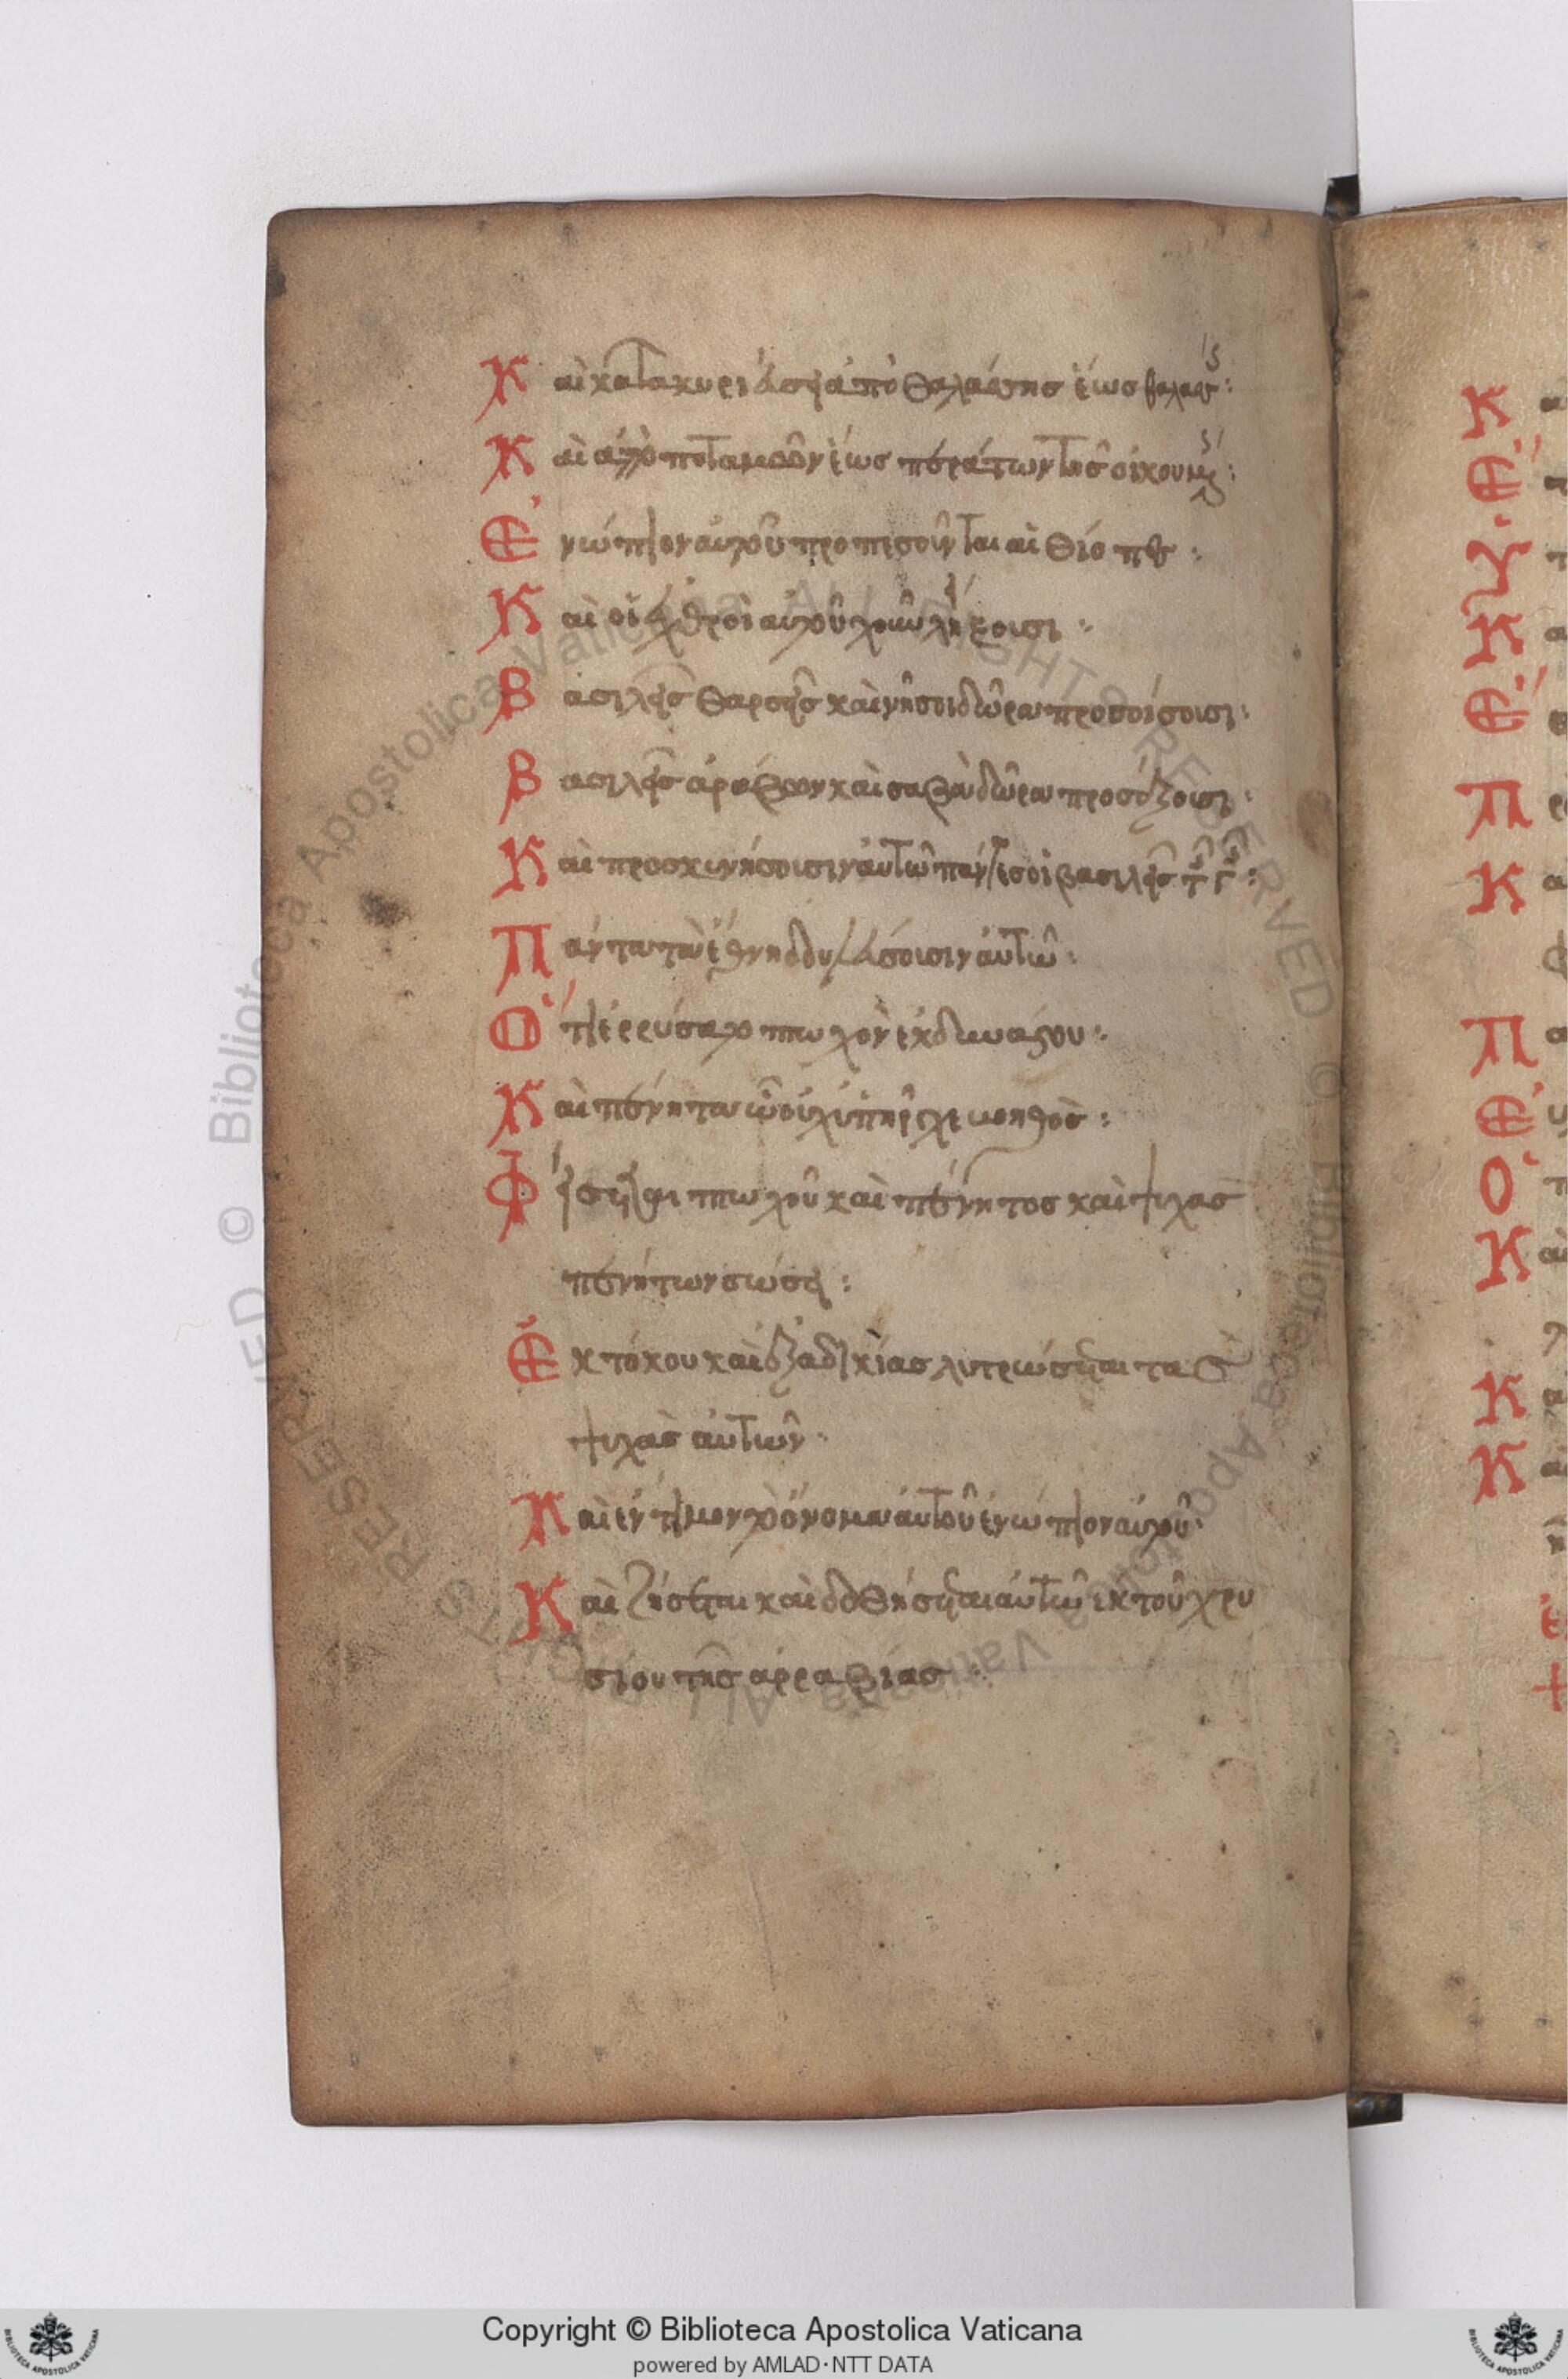 Καὶ κατακυριεύσει ἀπὸ θαλάσσης ἕως θαλάσσης:
Καὶ ἀπὸ ποταμῶν ἕως περάτων τῆς οἰκουμένης:
Ἐνώπιον αὐτοῦ προπεσοῦνται αἰθίοπες:
Καὶ οἱ ἐχθροὶ αὐτοῦ χοῦν λείξουσι:
Βασιλεῖς θαρσεῖς καὶ νῆσοι δῶρα προσοίσουσι:
Βασιλεῖς ἀράβων καὶ σαβὰ δῶρα προσάξουσι:
Καὶ προσκυνήσουσιν αὐτῶ πάντες οἱ βασιλεῖς τῆς γῆς:
Πάντα τὰ ἔθνη δουλεύσουσιν αὐτῶ:
Ὅτι ἐρρύσατο πτωχὸν ἐκ δυνάστου:
Καὶ πένητα ὧ οὐχ ὑπῆρχε βοηθὸς:
Φείσεται πτωχοῦ καὶ πένητος καὶ ψυχὰς
πενήτων σώσει:
Ἐκ τόκου καὶ ἐξ ἀδικίας λυτρώσεται τὰς
ψυχὰς αὐτῶν:
Καὶ ἔντιμον τὸ ὄνομα αὐτοῦ ἐνώπιον αὐτοῦ:
Καὶ ζήσεται καὶ δοθήσεται αὐτῶ ἐκ τοῦ χρυ
σίου τῆς ἀρραβίας:
Copyright © Biblioteca Apostolica Vaticana
powered by AMLAD·NTT DATA